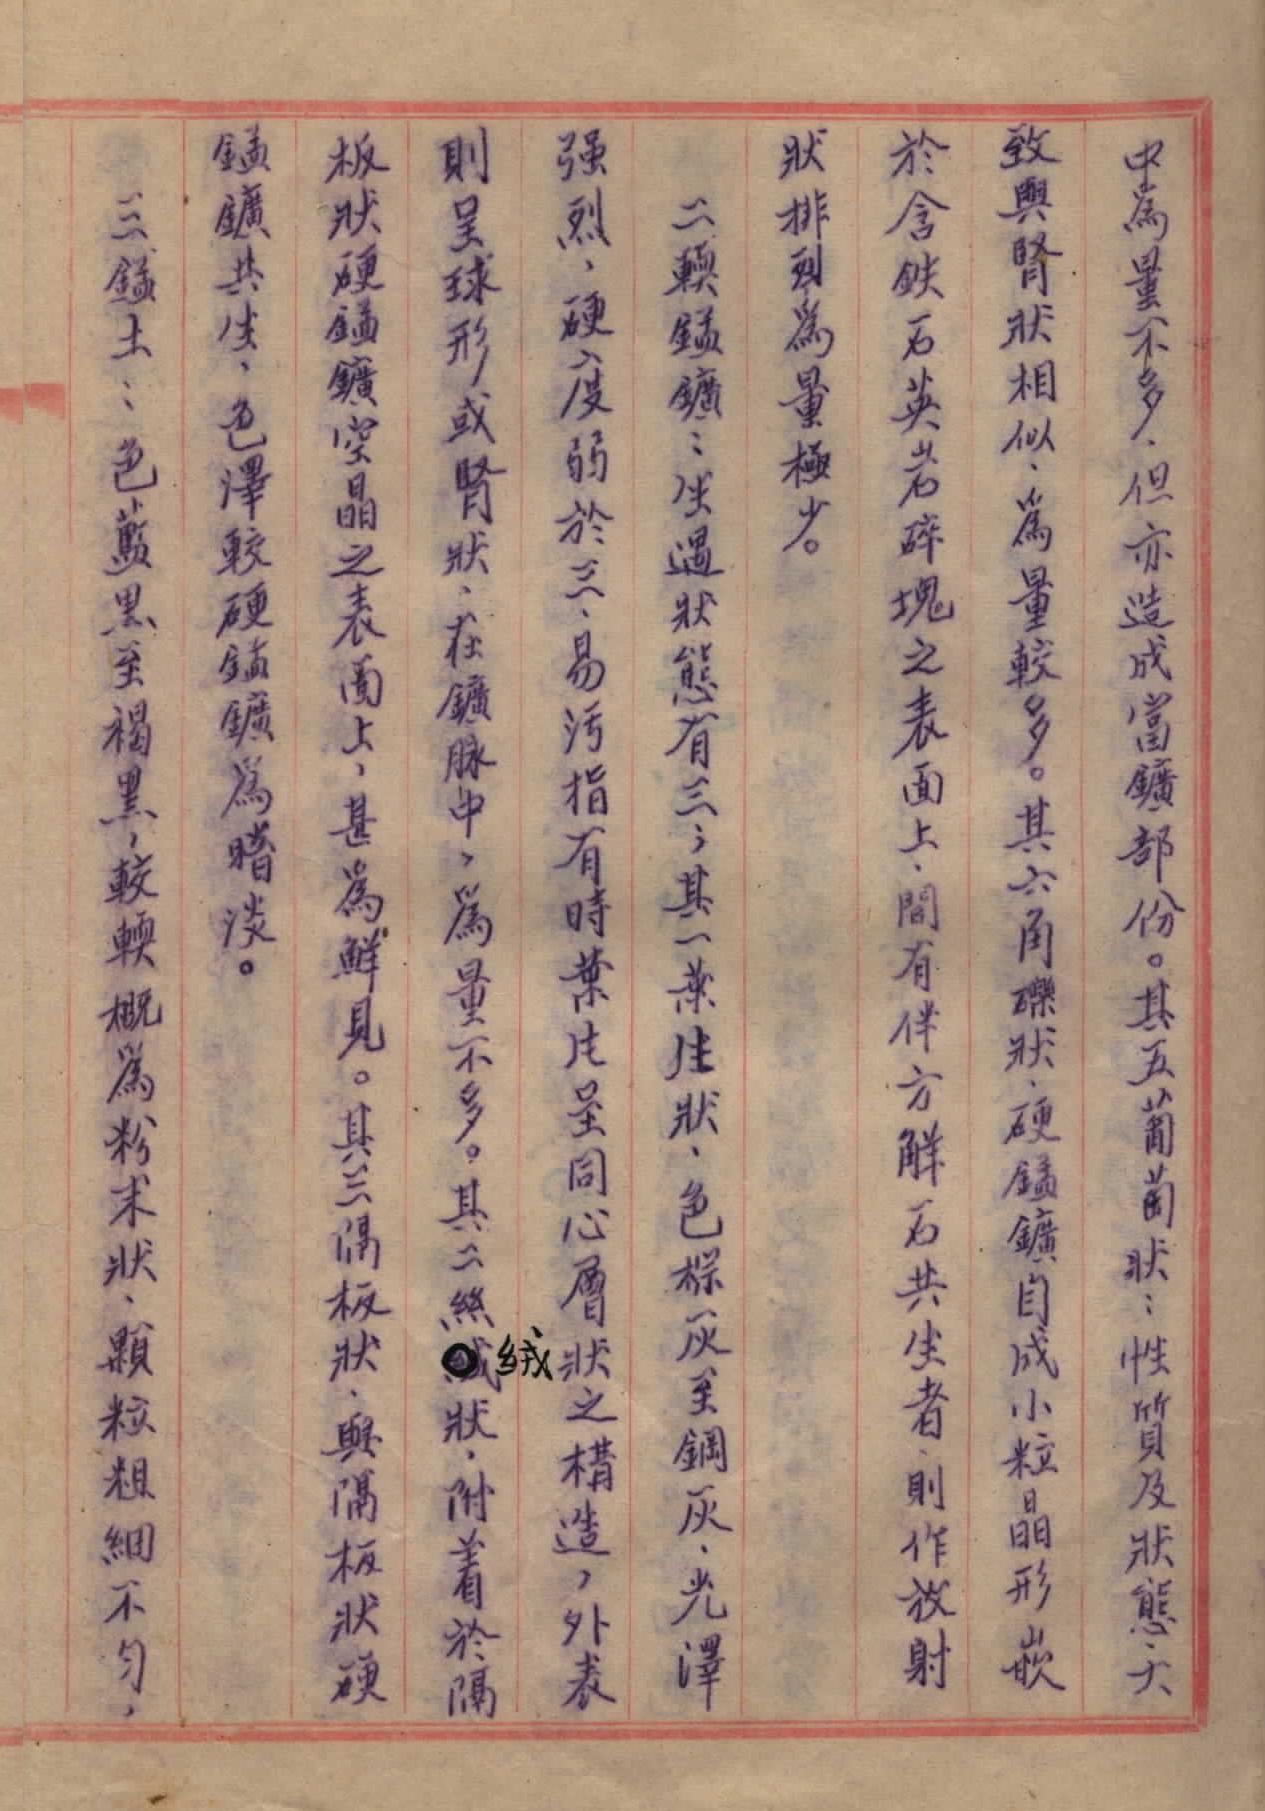 中爲量不多、但亦造成富鑛部份。其五葡萄狀：性質及狀態、大
致與腎狀相似、爲量較多。其六角礫狀、硬錳鑛自成小粒晶形嵌
於含鉄石英岩碎塊之表面上、間有伴方解石共生者、則作放射
狀排列爲量極少。
二輭錳鑛：生過狀態有三；其一葉片狀、色棕灰至鋼灰、光澤
强烈，硬度弱於三、易污指有時葉片呈同心層狀之構造，外表
則呈球形或腎狀、在鑛脉中，爲量不多。其二絲絨狀，附着於隔
板狀硬錳鑛空晶之表面上，甚爲鮮見。其三隔板狀、與隔板狀硬
錳鑛共生、色澤較硬錳鑛爲暗淡。
三錳土：色藍黑至褐黑，較輭概爲粉末狀、顆粒粗細不匀，